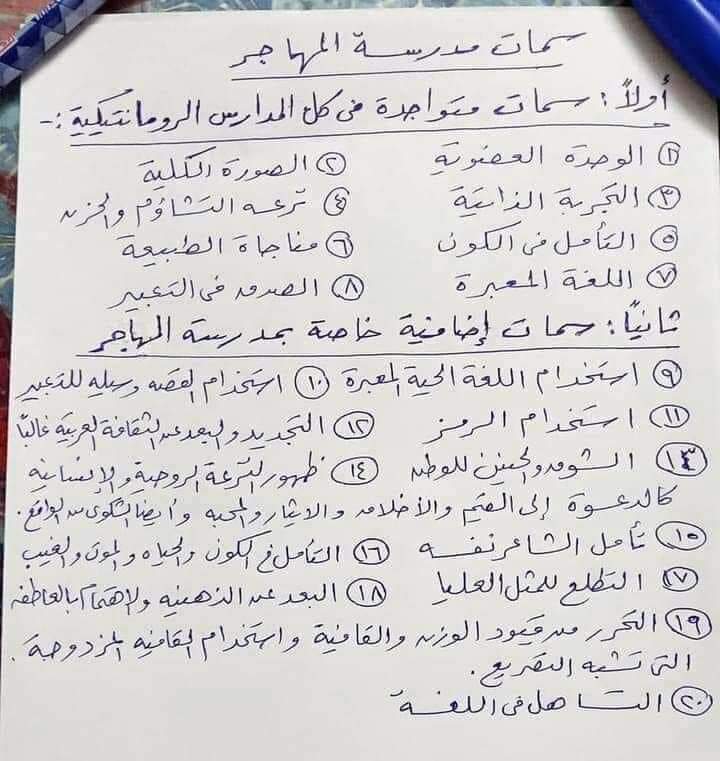 سمات مدرسة المهاجر
أولاً: سمات متواجدة في كل المدارس الرومانتيكية :-
① الوحدة العضوية ② الصورة الكلية
③ التجربة الذاتية ④ نزعه التشاؤم والحزن
⑤ التأمل في الكون ⑥ مناجاة الطبيعة
⑦ اللغة المعبرة ⑧ الصدق في التعبير
ثانياً: سمات إضافية خاصة بمدرسة المهاجر
⑨ استخدام اللغة الحية المعبرة ⑩ استخدام القصه وسيله للتعبير
⑪ استخدام الرمز ⑫ التجديد والبعد عن الثقافة العربية غالباً
⑬ الشوق والحنين للوطن ⑭ ظهور النزعة الروحية والإنسانية
كالدعوة إلى القيم والأخلاق والايثار والمحبه وأيضا الشكوى من الواقع .
⑮ تأمل الشاعر نفسه ⑯ التأمل في الكون والحياه والموت والغيب
⑰ التطلع للمثل العليا ⑱ البعد عن الذهنيه والإهتمام بالعاطفه
⑲ التحرر من قيود الوزن والقافية واستخدام القافيه المزدوجة .
التى تشبه التصريع .
⑳ التساهل في اللغة